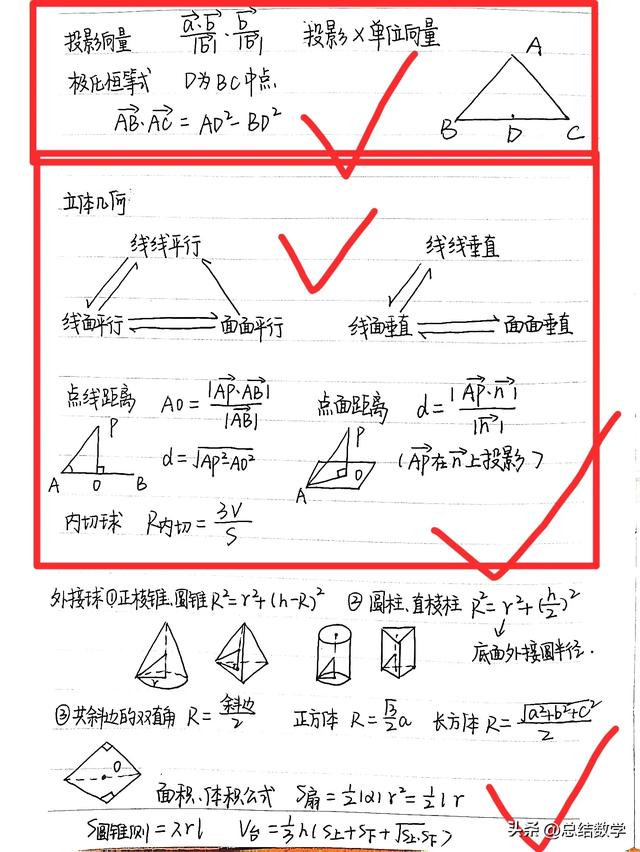 投影向量 \frac{\vec{a}·\vec{b}}{|\vec{b}|}·\frac{\vec{b}}{|\vec{b}|} 投影×单位向量
极化恒等式 D为BC中点
\vec{AB}·\vec{AC} = AD²-BD²
A
B D C
立体几何
线线平行 线线垂直
线面平行 面面平行 线面垂直 面面垂直
点线距离 AO = \frac{|\vec{AP}·\vec{AB}|}{|\vec{AB}|} 点面距离 d = \frac{|\vec{AP}·\vec{n}|}{|\vec{n}|}
P P
d = \sqrt{AP²-AO²} (\vec{AP}在\vec{n}上投影)
A O B A O
内切球 R内切 = \frac{3V}{S}
外接球 ①正棱锥、圆锥 R²=r²+(h-R)² ② 圆柱、直棱柱 R²=r²+(\frac{h}{2})²
r
底面外接圆半径.
③共斜边的双直角 R = \frac{斜边}{2} 正方体 R = \frac{\sqrt{3}}{2}a 长方体 R = \frac{\sqrt{a²+b²+c²}}{2}
O
面积、体积公式 S扇 = \frac{1}{2}|α|r² = \frac{1}{2}lr
S圆锥侧 = πrl V台 = \frac{1}{3}h(S上+S下+\sqrt{S上·S下})
头条 @总结数学